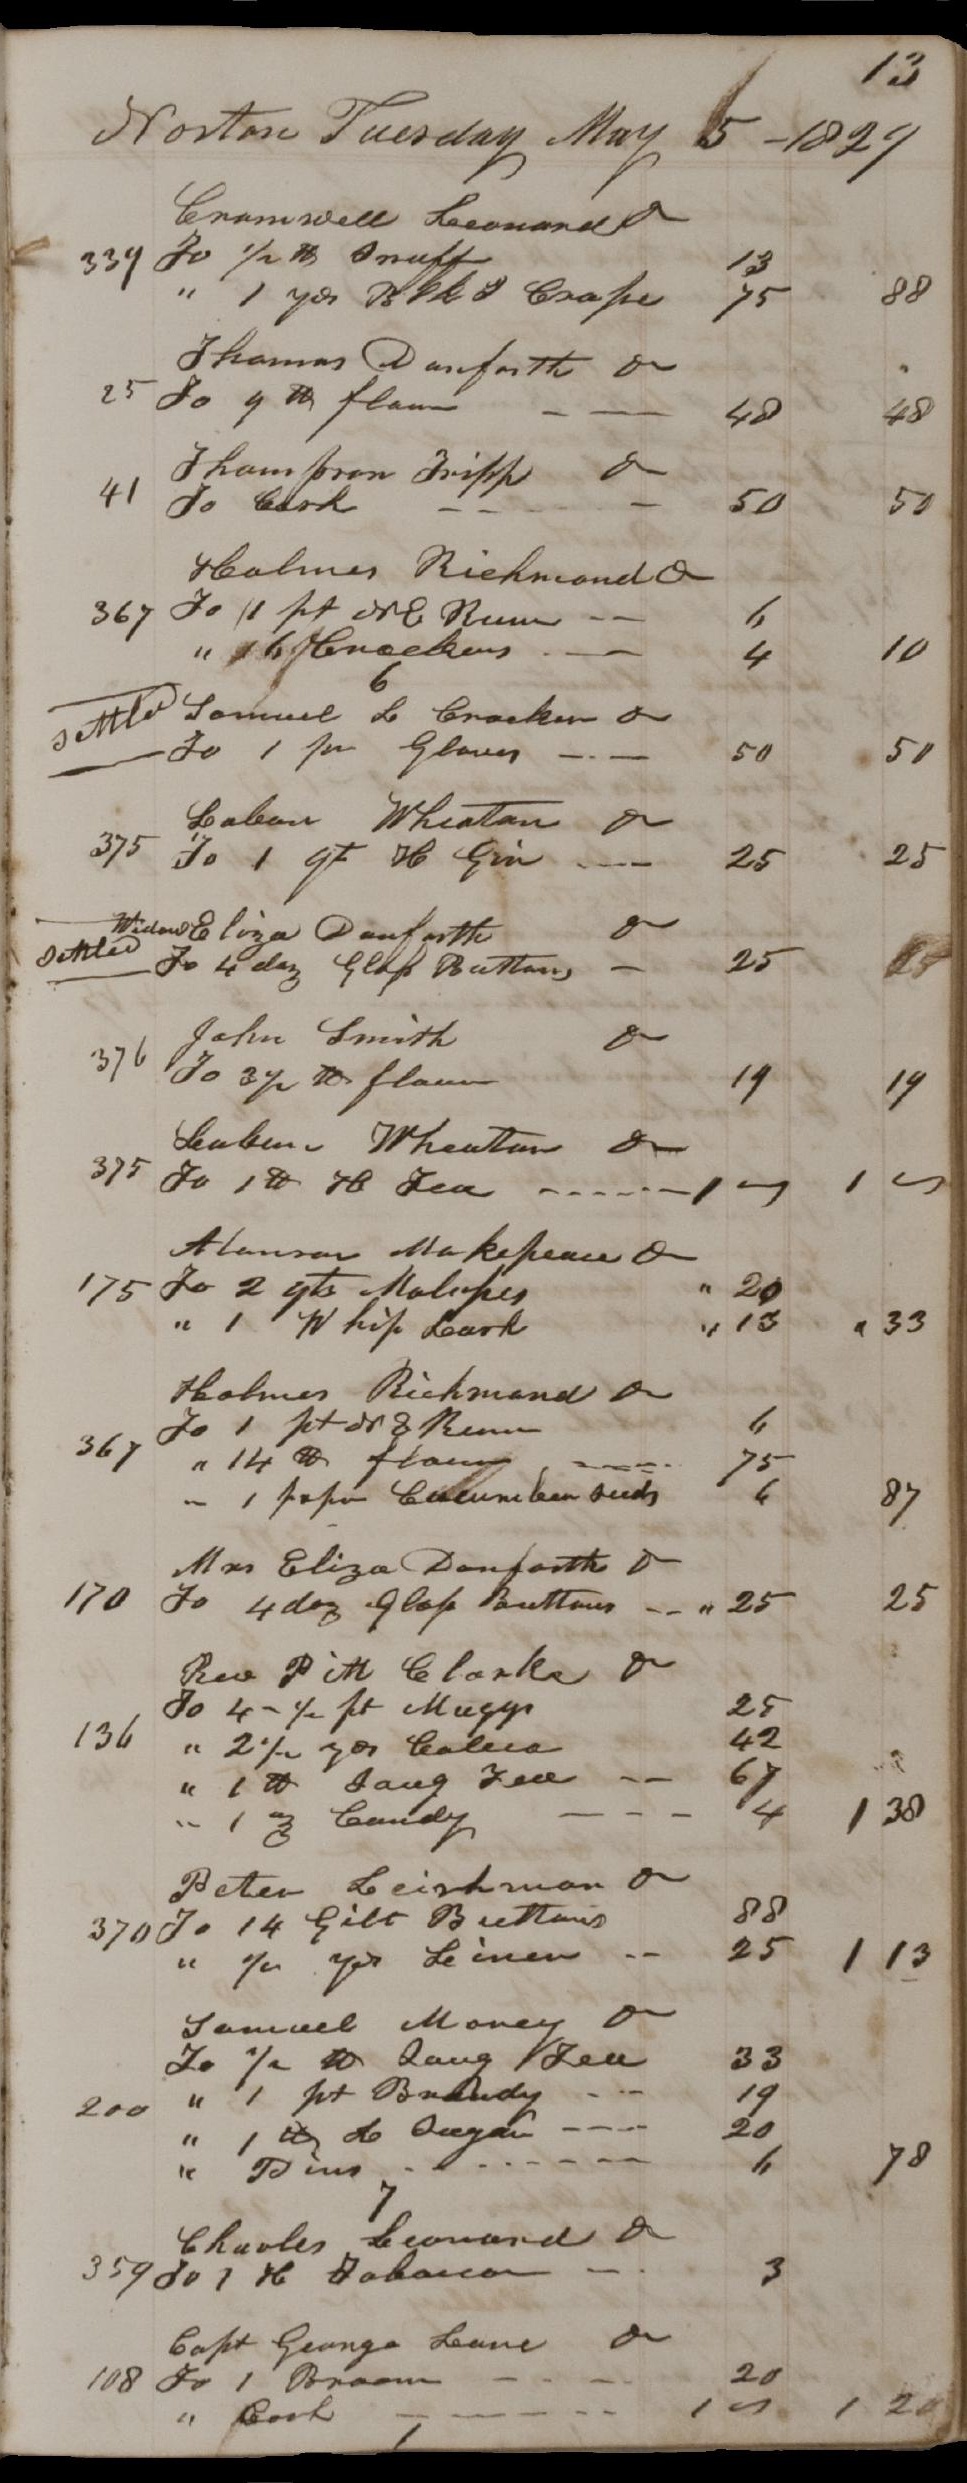 13
Norton Tuesday May 5 - 1829
Cromwell Leonard Dr
339 To 1/2 lb Snuff 13
" 1 yds Blk S Crape 75 88
Thomas Danforth Dr
25 To 9 lb flour - - 48 48
Thompson Tripp Dr
41 To Cash - - - - 50 50
Holmes Richmond Dr
367 To 1 pt N E Rum - - 6
" 16 Crackers - - 4 10
6
Settled Samuel L Crocker Dr
To 1 pr Gloves - - - 50 50
Laban Wheaton Dr
375 To 1 qt H Gin - - - 25 25
Widow Eliza Danforth Dr
Settled To 4 doz Glass Buttons - 25 25
John Smith Dr
376 To 3 1/2 lb flour 19 19
Laban Wheaton Dr
375 To 1 lb H Tea - - - - - - 1 ~ 1 ~
Alanson Makepeace Dr
175 To 2 qts Molasses " 20
" 1 Whip Lash " 13 " 33
Holmes Richmond Dr
To 1 pt N E Rum 6
367 " 14 lb flour - - - - 75
" 1 paper Cucumber seeds 6 87
Mrs Eliza Danforth Dr
170 To 4 doz Glass Buttons - - " 25 25
Rev Pitt Clarke Dr
To 4 - 1/2 pt Muggs 25
136 " 2 1/2 yds Calico 42
" 1 lb Soug Tea - - 67
" 1 oz Candy - - - 4 1 38
Peter Leishman Dr
370 To 14 Gilt Buttons 88
" 1/2 yds Linen - - 25 1 13
Samuel Morey Dr
To 1/2 lb Soug Tea 33
200 " 1 pt Brandy - - 19
" 1 lb L Sugar - - - 20
" Pins - - - - - - - 6 78
7
Charles Leonard Dr
359 To 1 H Tobacco - - 3
Capt George Lane Dr
108 To 1 Broom - - - 20
" Cash - - - - - - 1 ~ 1 20